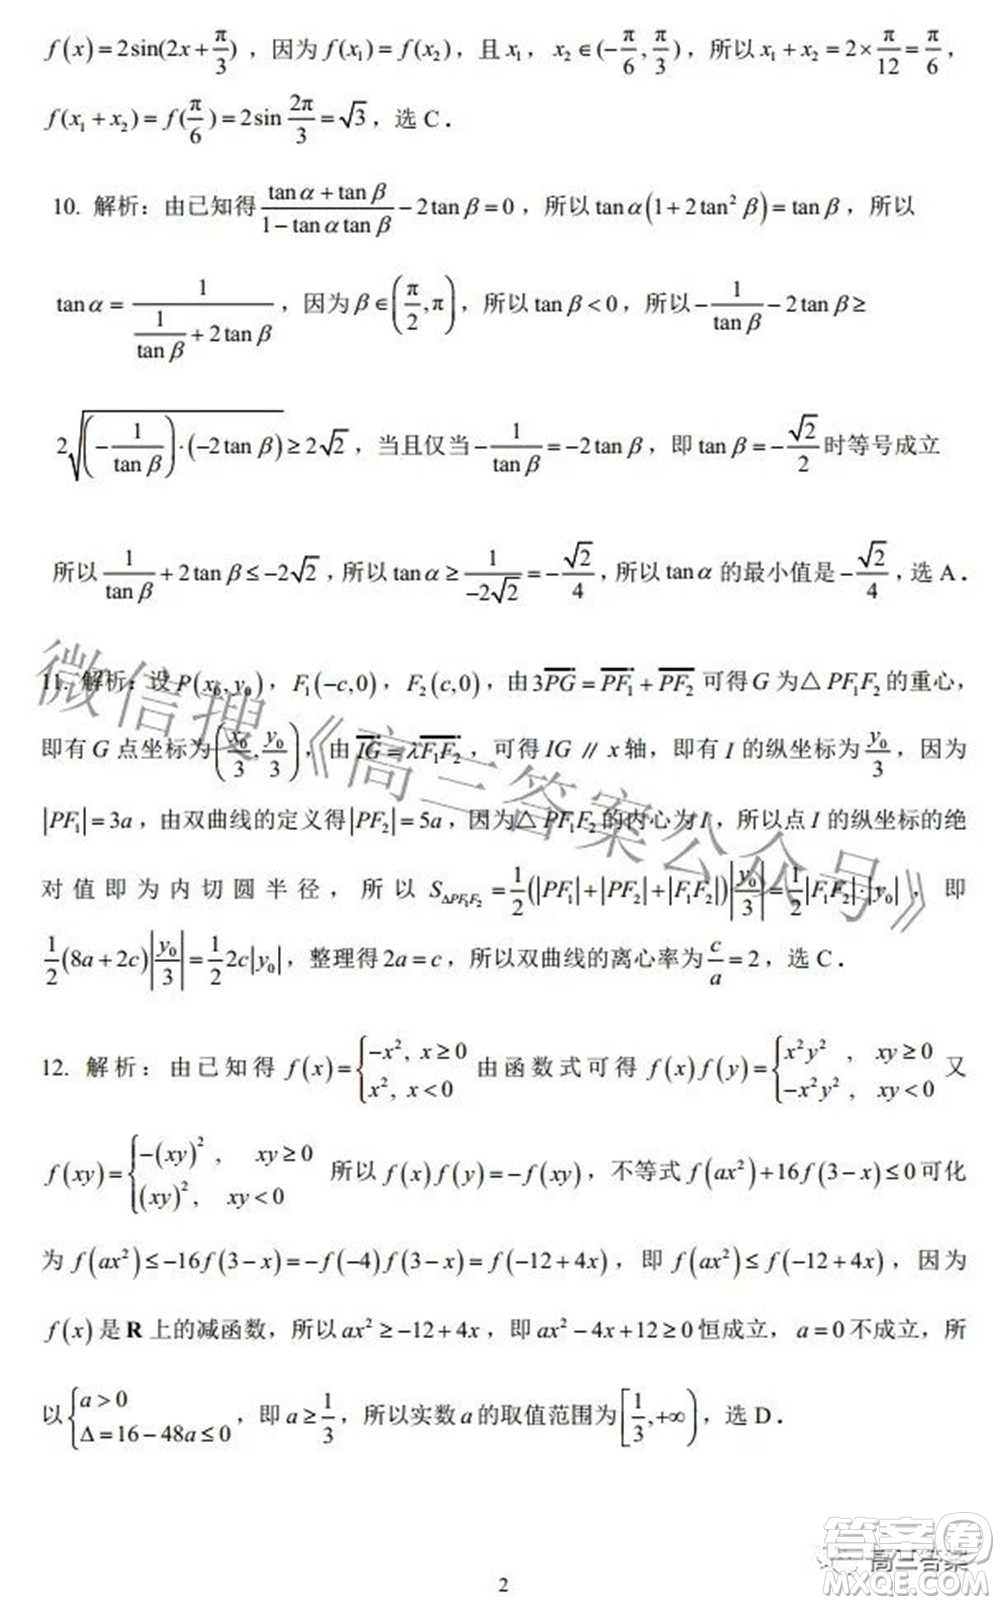 f(x)=2sin(2x+π/3)，因为 f(x₁)=f(x₂)，且 x₁，x₂∈(-π/6,π/3)，所以 x₁+x₂=2×π/12=π/6，
f(x₁+x₂)=f(π/6)=2sin 2π/3=√3，选 C．
10. 解析：由已知得 (tanα+tanβ)/(1-tanαtanβ)-2tanβ=0，所以 tanα(1+2tan²β)=tanβ，所以
tanα=1/(1/tanβ+2tanβ)，因为 β∈(π/2,π)，所以 tanβ<0，所以 -1/tanβ-2tanβ≥
2√((-1/tanβ)·(-2tanβ))≥2√2，当且仅当 -1/tanβ=-2tanβ，即 tanβ=-√2/2 时等号成立
所以 1/tanβ+2tanβ≤-2√2，所以 tanα≥1/(-2√2)=-√2/4，所以 tanα 的最小值是 -√2/4，选 A．
11. 解析：设 P(x₀,y₀)，F₁(-c,0)，F₂(c,0)，由 3PG=PF₁+PF₂ 可得 G 为△PF₁F₂ 的重心，
即有 G 点坐标为(x₀/3,y₀/3)，由 IG=λF₁F₂，可得 IG∥x 轴，即有 I 的纵坐标为 y₀/3，因为
|PF₁|=3a，由双曲线的定义得|PF₂|=5a，因为△PF₁F₂ 的内心为 I，所以点 I 的纵坐标的绝
对值即为内切圆半径，所以 S△PF₁F₂=1/2(|PF₁|+|PF₂|+|F₁F₂|)|y₀/3|=1/2|F₁F₂|·|y₀|，即
1/2(8a+2c)|y₀/3|=1/2 2c|y₀|，整理得 2a=c，所以双曲线的离心率为 c/a=2，选 C．
12. 解析：由已知得 f(x)={-x², x≥0; x², x<0 由函数式可得 f(x)f(y)={x²y²，xy≥0; -x²y²，xy<0 又
f(xy)={-(xy)²，xy≥0; (xy)²，xy<0 所以 f(x)f(y)=-f(xy)，不等式 f(ax²)+16f(3-x)≤0 可化
为 f(ax²)≤-16f(3-x)=-f(-4)f(3-x)=f(-12+4x)，即 f(ax²)≤f(-12+4x)，因为
f(x) 是 R 上的减函数，所以 ax²≥-12+4x，即 ax²-4x+12≥0 恒成立，a=0 不成立，所
以{a>0; Δ=16-48a≤0，即 a≥1/3，所以实数 a 的取值范围为[1/3,+∞)，选 D．
微信搜《高三答案公众号》
答案卷
高三答案
MXQE.COM
2